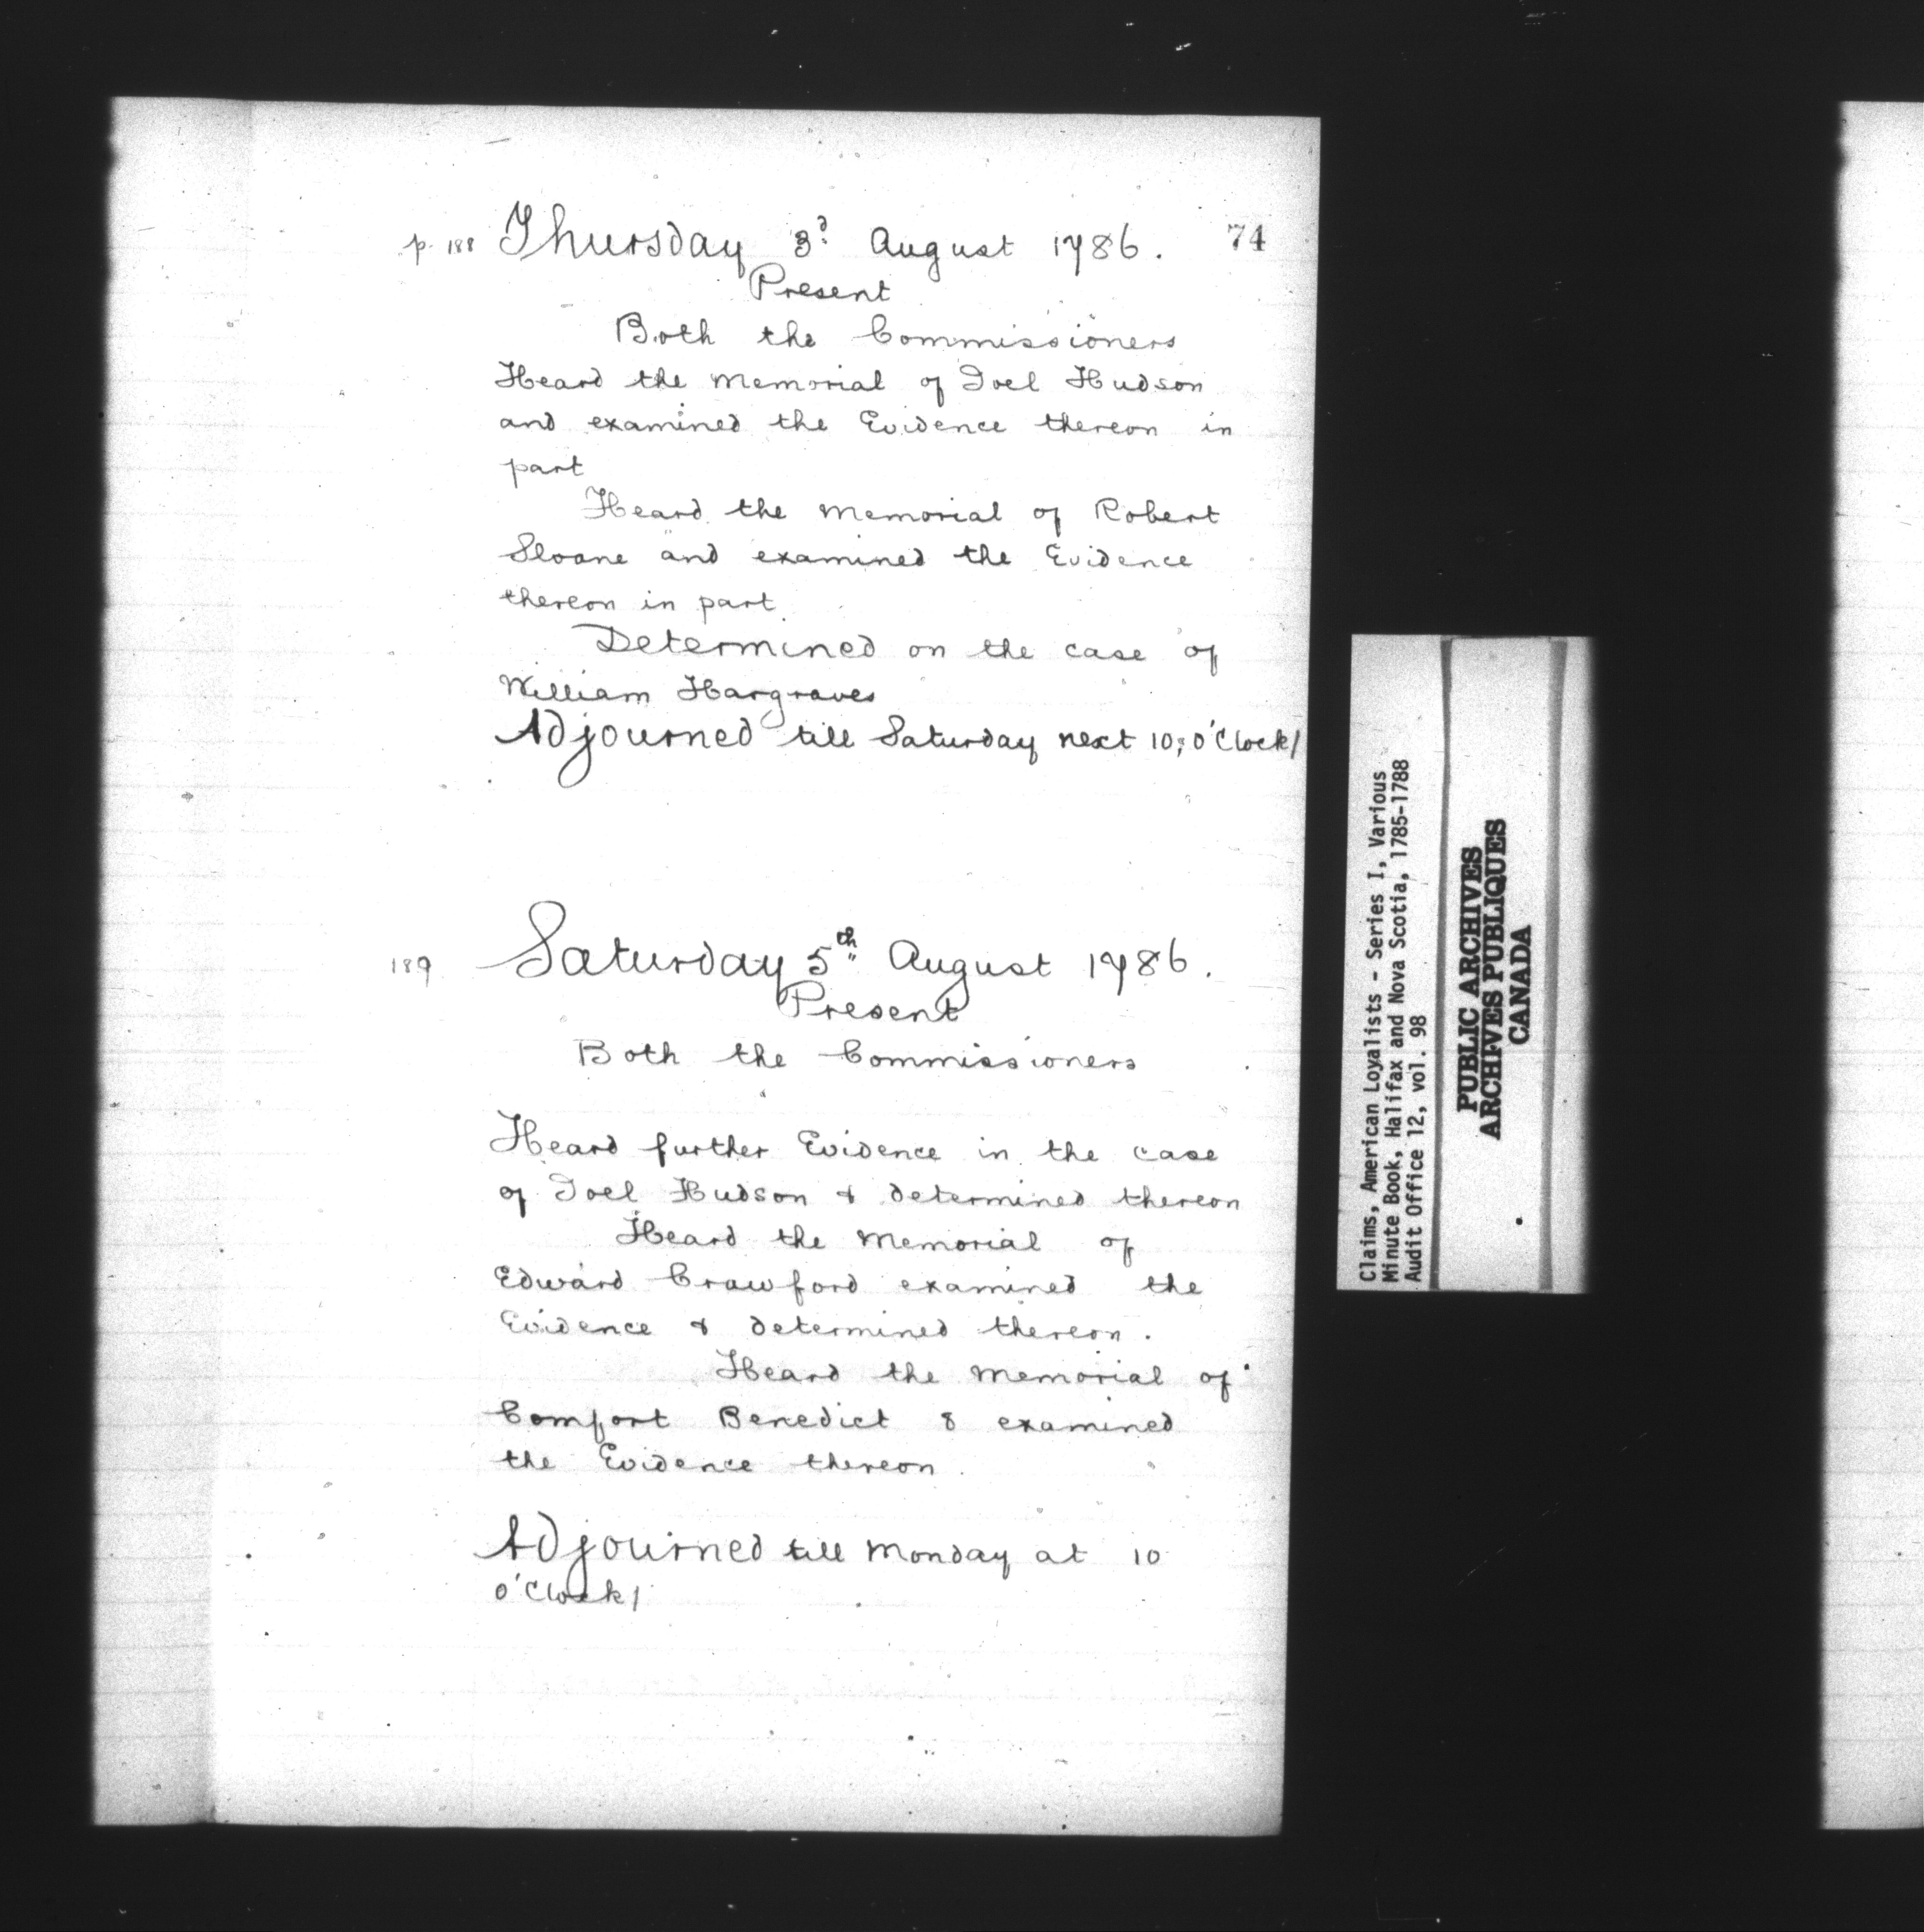 p. 188 Thursday 3d August 1786. 74
Present
Both the Commissioners
Heard the Memorial of Joel Hudson
and examined the Evidence thereon in
part
Heard the Memorial of Robert
Sloane and examined the Evidence
thereon in part
Determined on the case of
William Hargraves
Adjourned till Saturday next 10; o'Clock/
189 Saturday 5th August 1786.
Present
Both the Commissioners
Heard further Evidence in the case
of Joel Hudson & determined thereon
Heard the Memorial of
Edward Crawford examined the
Evidence & determined thereon.
Heard the Memorial of
Comfort Benedict & examined
the Evidence thereon
Adjourned till Monday at 10
o'Clock/
Claims, American Loyalists - Series I, Various
Minute Book, Halifax and Nova Scotia, 1785-1788
Audit Office 12, vol. 98
PUBLIC ARCHIVES
ARCHIVES PUBLIQUES
CANADA